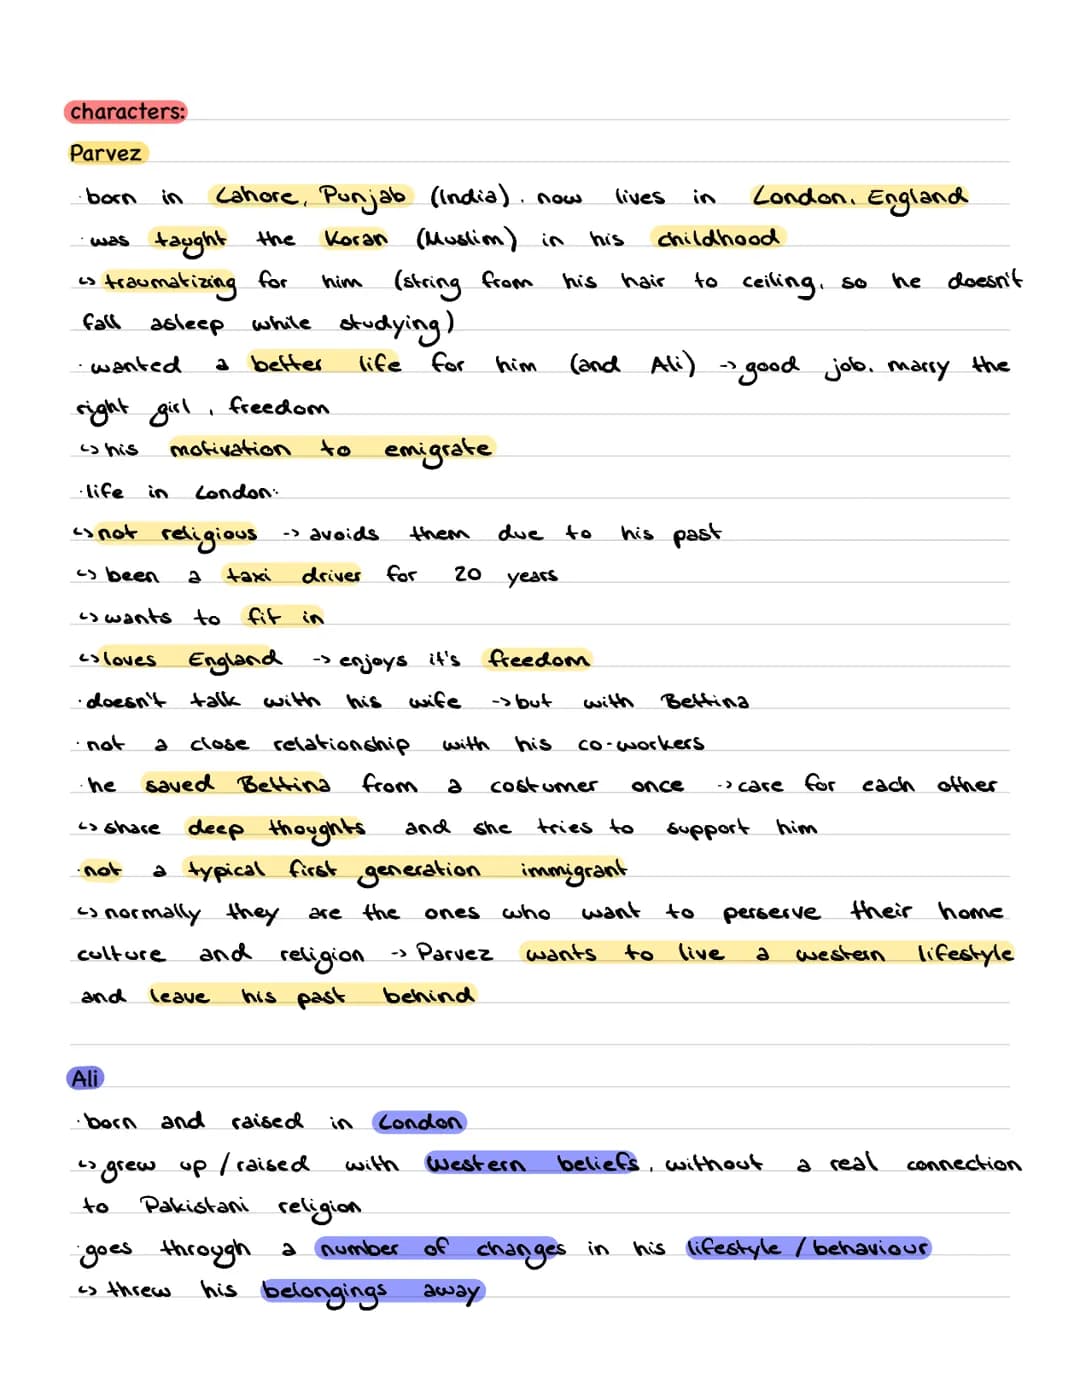 characters:
Parvez
·born in Lahore, Punjab (India). now lives in London, England
·was taught the Koran (Muslim) in his childhood
↳ traumatizing for him (string from his hair to ceiling, so he doesn't
fall asleep while studying)
·wanted a better life for him (and Ali) -> good job, marry the
right girl, freedom
↳ his motivation to emigrate
·life in London:
↳ not religious -> avoids them due to his past
↳ been a taxi driver for 20 years
↳ wants to fit in
↳ loves England -> enjoys it's freedom
·doesn't talk with his wife -> but with Bettina
·not a close relationship with his co-workers
·he saved Bettina from a costumer once -> care for each other
↳ share deep thoughts and she tries to support him
·not a typical first generation immigrant
↳ normally they are the ones who want to perserve their home
culture and religion -> Parvez wants to live a western lifestyle
and leave his past behind
Ali
·born and raised in London
↳ grew up / raised with Western beliefs, without a real connection
to Pakistani religion
·goes through a number of changes in his lifestyle / behaviour
↳ threw his belongings away